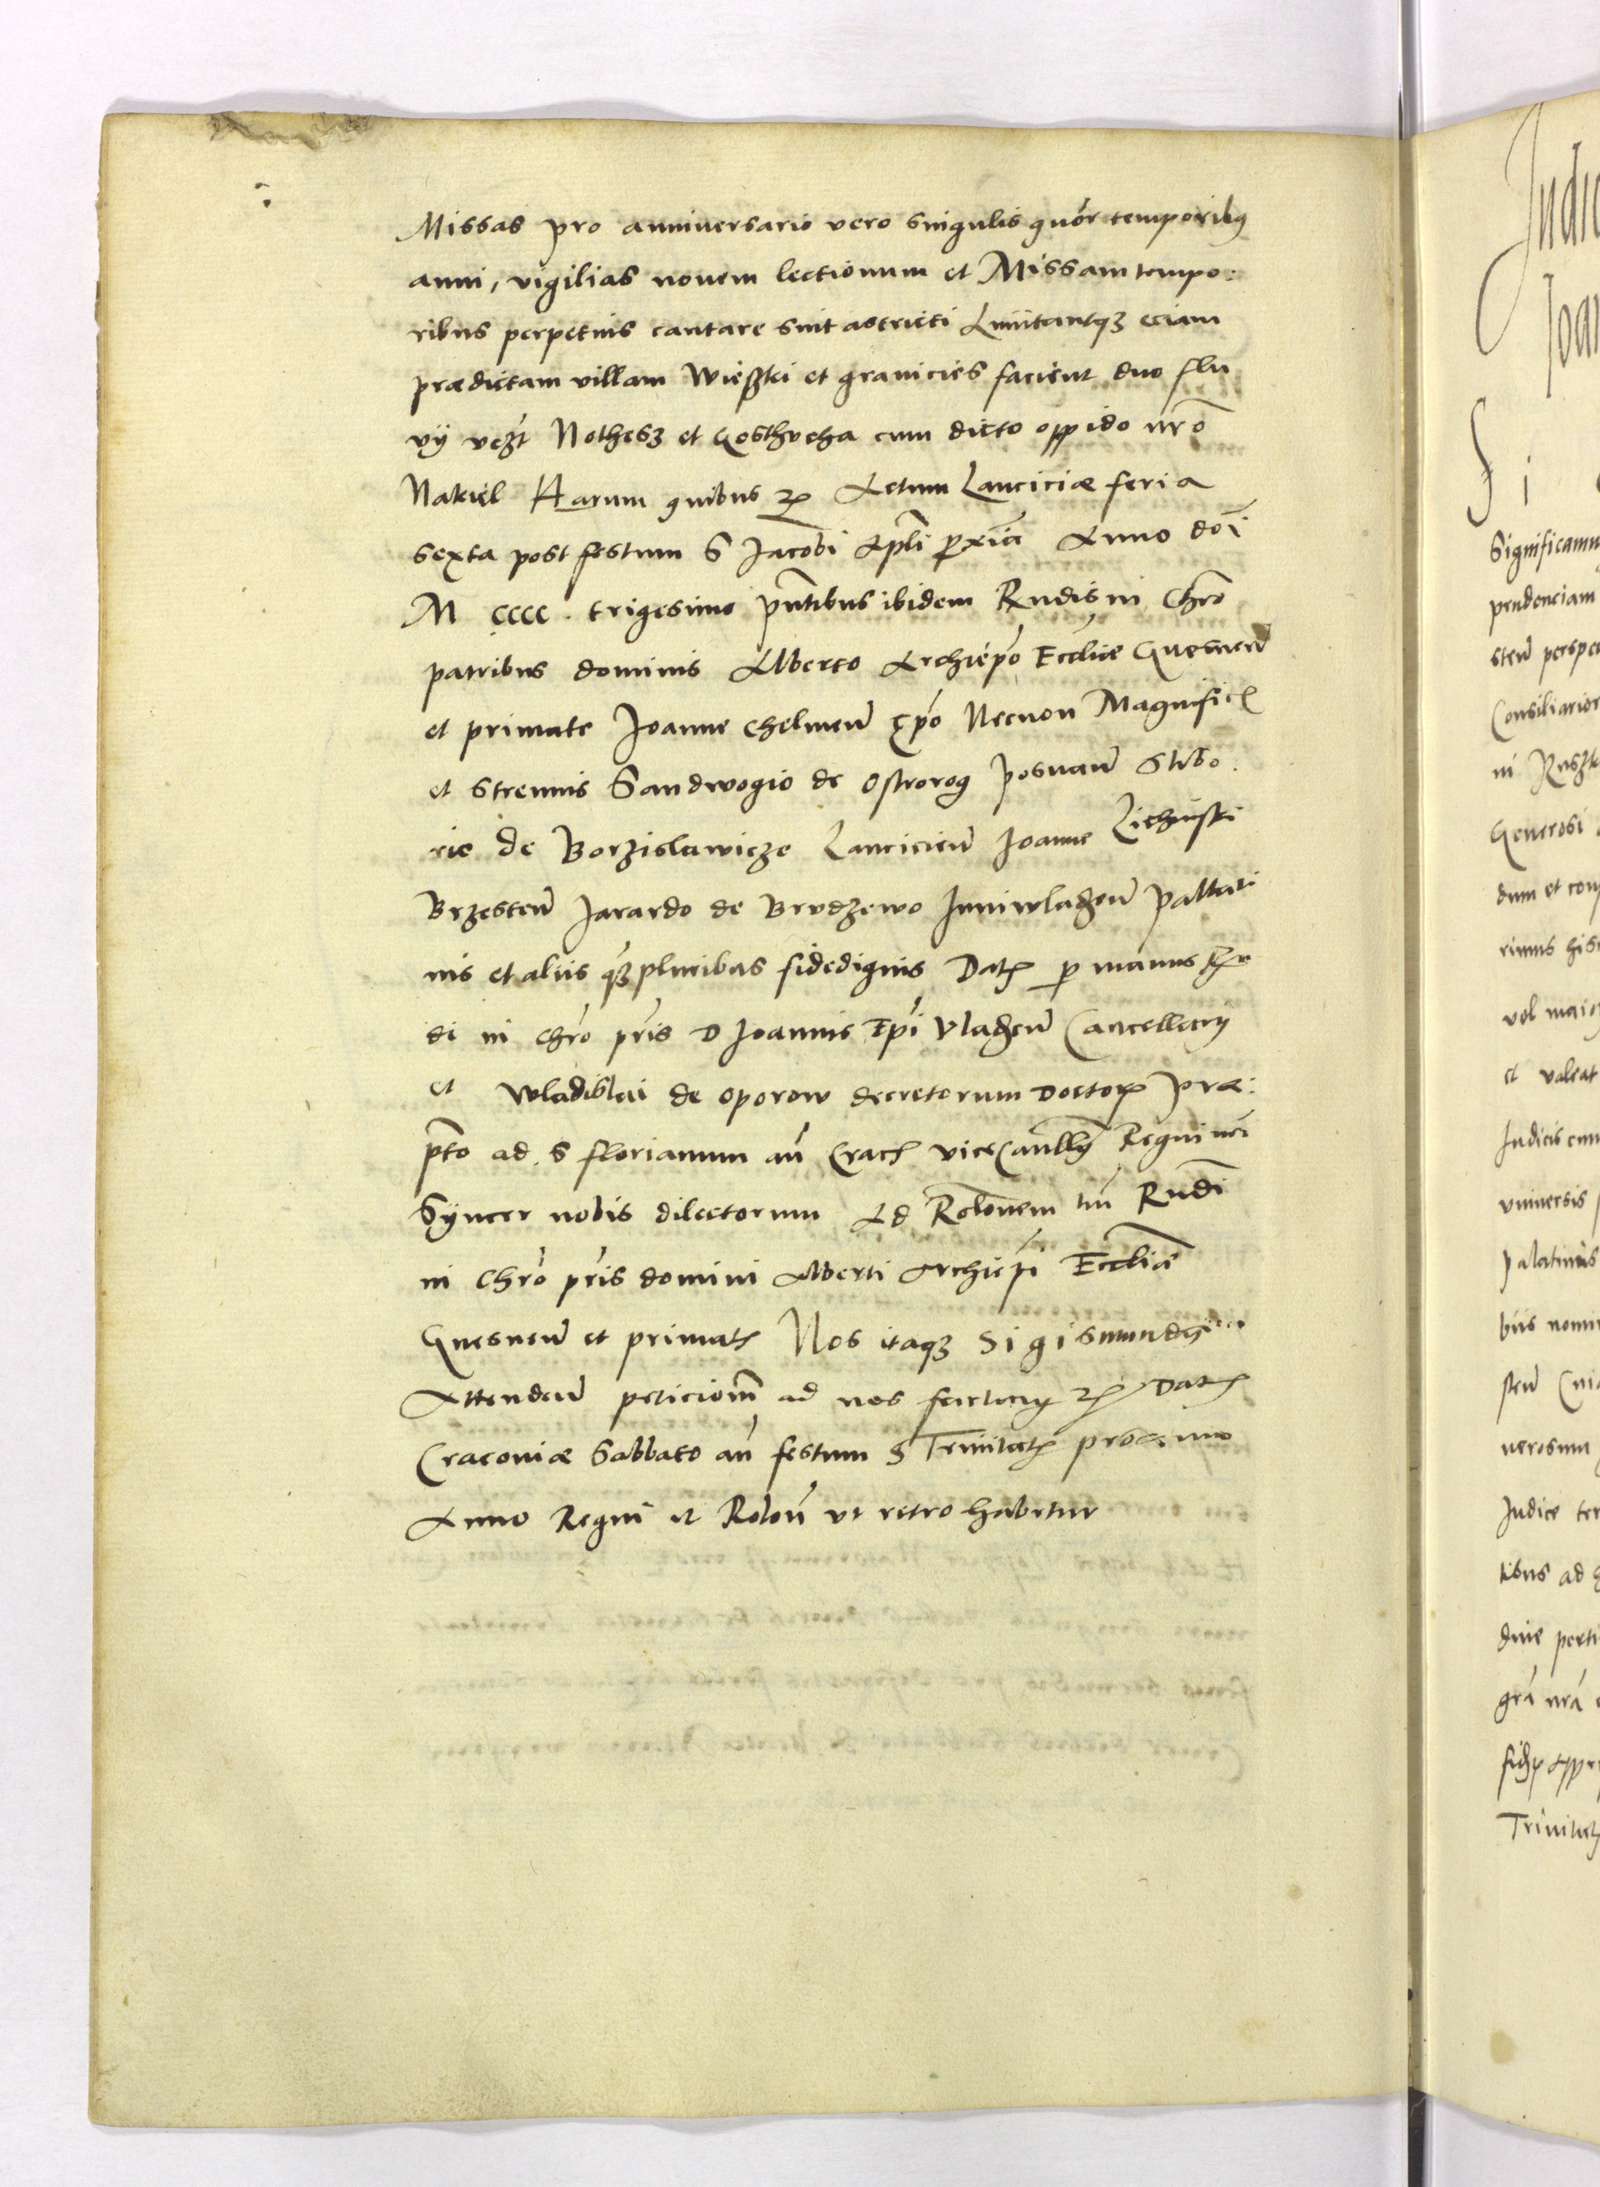 Missas pro anniversario vero singulis quor temporibus
anni, vigilias novem lectionum et Missam tempo:
ribus perpetuis cantare sint astricti Limitantq3 eciam
prædictam villam Wieszki et granicies facient duo flu
vy vezt Nothesz et Gosthveha cum dicto oppido nro
Nakiel Harum quibus etc Actum Lanciciæ feria
sexta post festum S Jacobi Apli proxia Anno doi
M cccc. trigesimo pntibus ibidem Rndis in Chro
patribus dominis Alberto Archiepo Eccliæ Gnesnen
et primate Joanne Chelmen Epo Necnon Magnificis
et Strennis Sandwogio de Ostrorog Posnan Stibo.
rie de Borzislawicze Lancicien Joanne Lichinski
Brzesten Jarardo de Brvdzewo Juniwladzen Pallati
nis et aliis q3pluribus fidedignis Datum per manus
di in Chro pris D Joannis Epi Vladzen Cancellary
et Wladislai de Oporow decretorum Doctoris Præ:
pto ad S Florianum an Crac ViceCanlly Regni nri
Syncer nobis dilectorum Ad Relonem tn Rndi
in Chro pris domini Alberti Archiepi Eccliæ
Gnesnen et primatis Nos itaq3 Sigismundus
Attenden peticiom ad nos etc Datum
Cracoviæ Sabbato an festum S Trinitatis proximo
Anno Regni et Relon vt retro habetur
Significamus
prudenciam
sten
Consiliarior
in
Generosi
dum et
rimus
vel
et valeat
Judicis cum
vniversis
palatinus
biis nomi
sten
nerosum
Judice ter
tibus ad
dine
gra nra
Trinitatis